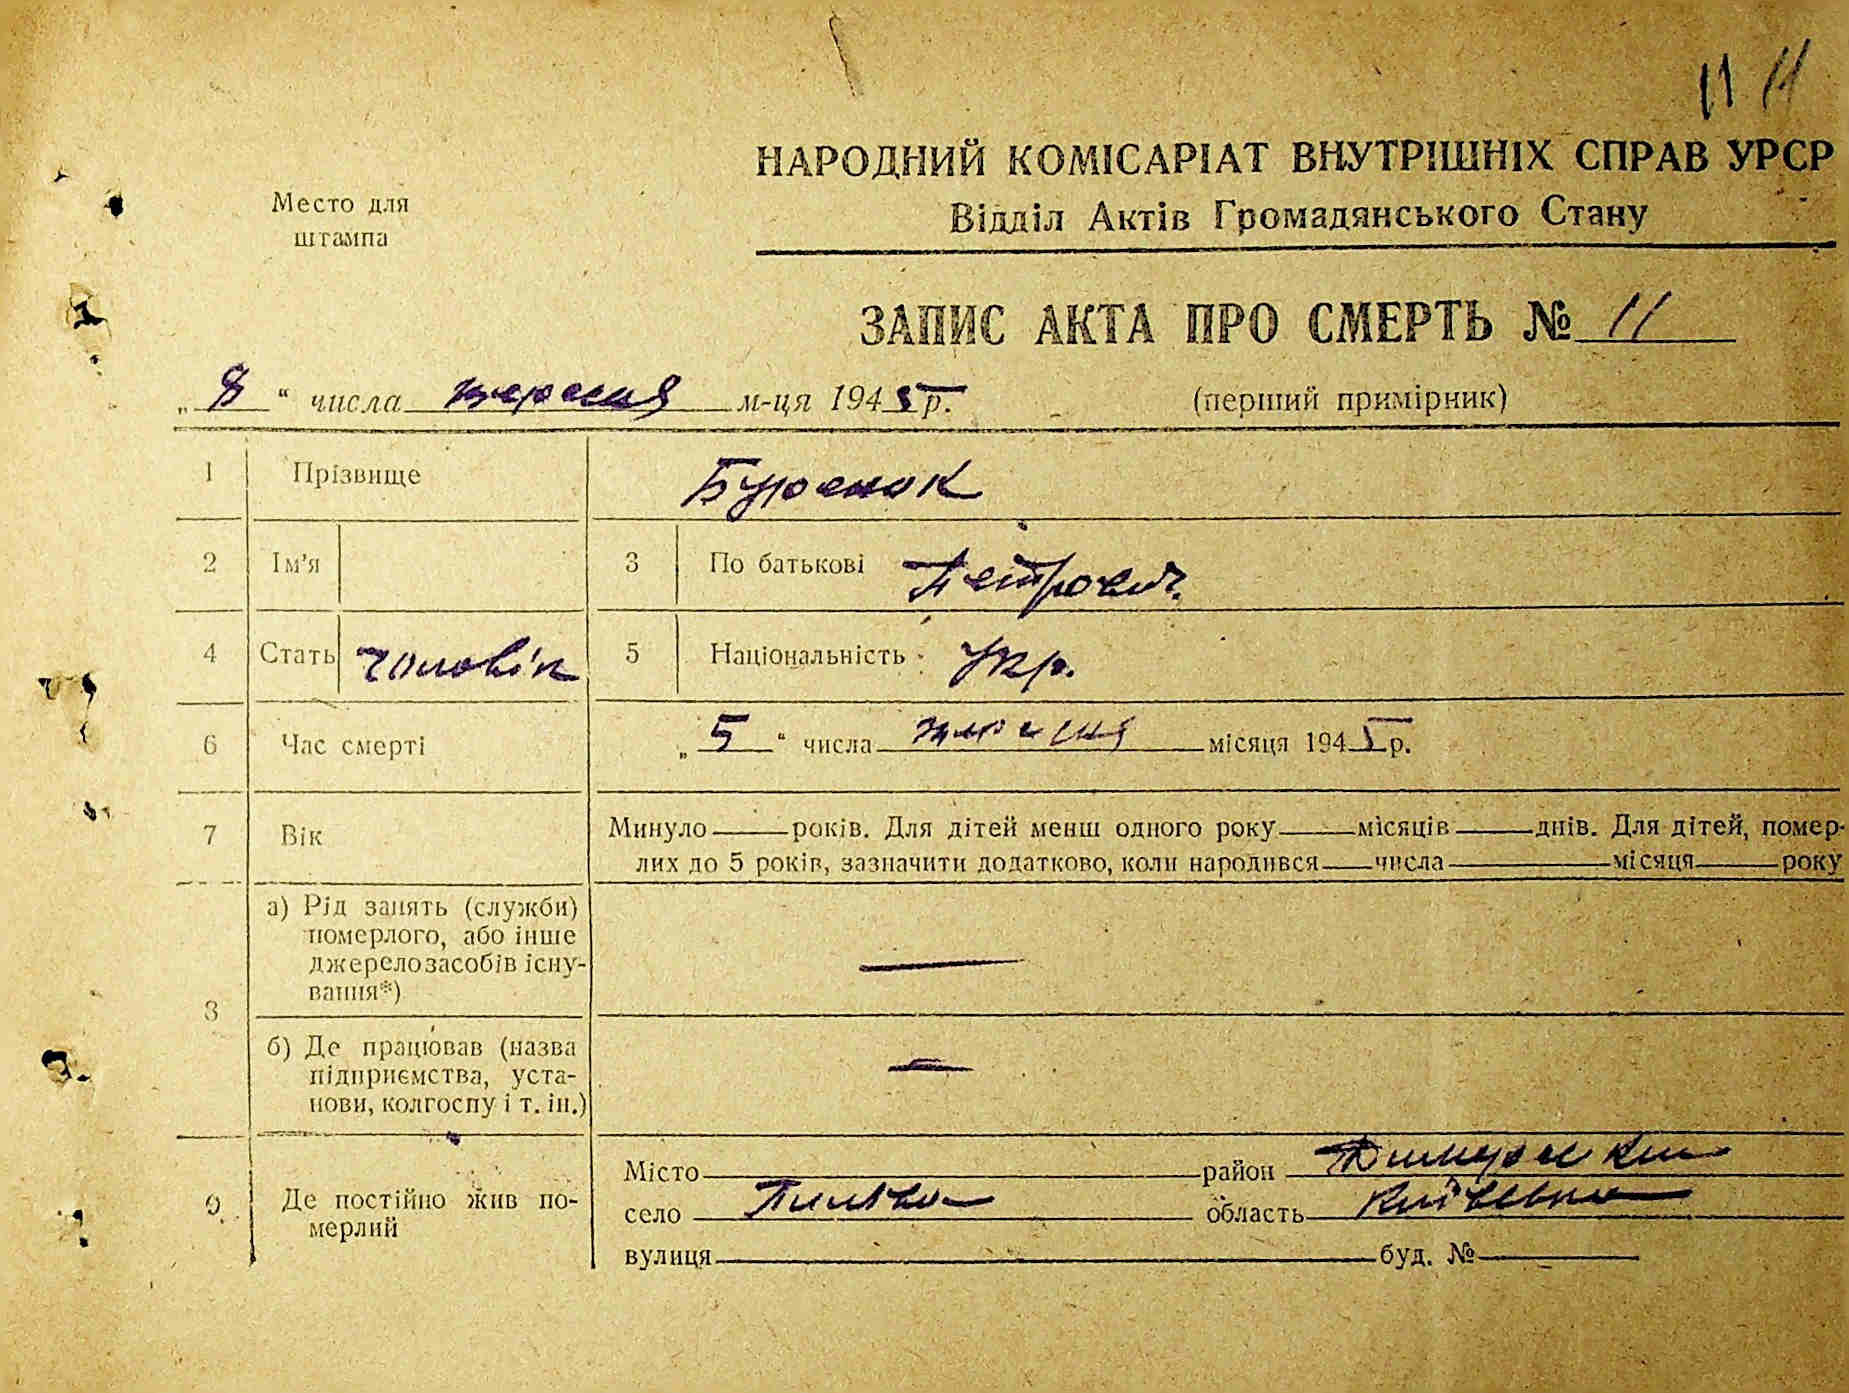 11 11
НАРОДНИЙ КОМІСАРІАТ ВНУТРІШНІХ СПРАВ УРСР
Відділ Актів Громадянського Стану
Место для
штампа
ЗАПИС АКТА ПРО СМЕРТЬ № 11
„8“ числа вересня м-ця 1945 р. (перший примірник)
1 Прізвище Буренок
2 Ім'я 3 По батькові Петрович.
4 Стать чоловік 5 Національність Укр.
6 Час смерті „5“ числа вересня місяця 1945 р.
7 Вік Минуло років. Для дітей менш одного року місяців днів. Для дітей, помер-
лих до 5 років, зазначити додатково, коли народився числа місяця року
8 а) Рід занять (служби)
померлого, або інше
джерело засобів існу-
вання*) —
б) Де працював (назва
підприємства, уста-
нови, колгоспу і т. ін.) —
9 Де постійно жив по-
мерлий
Місто район Димерський
село область Київська
вулиця буд. №